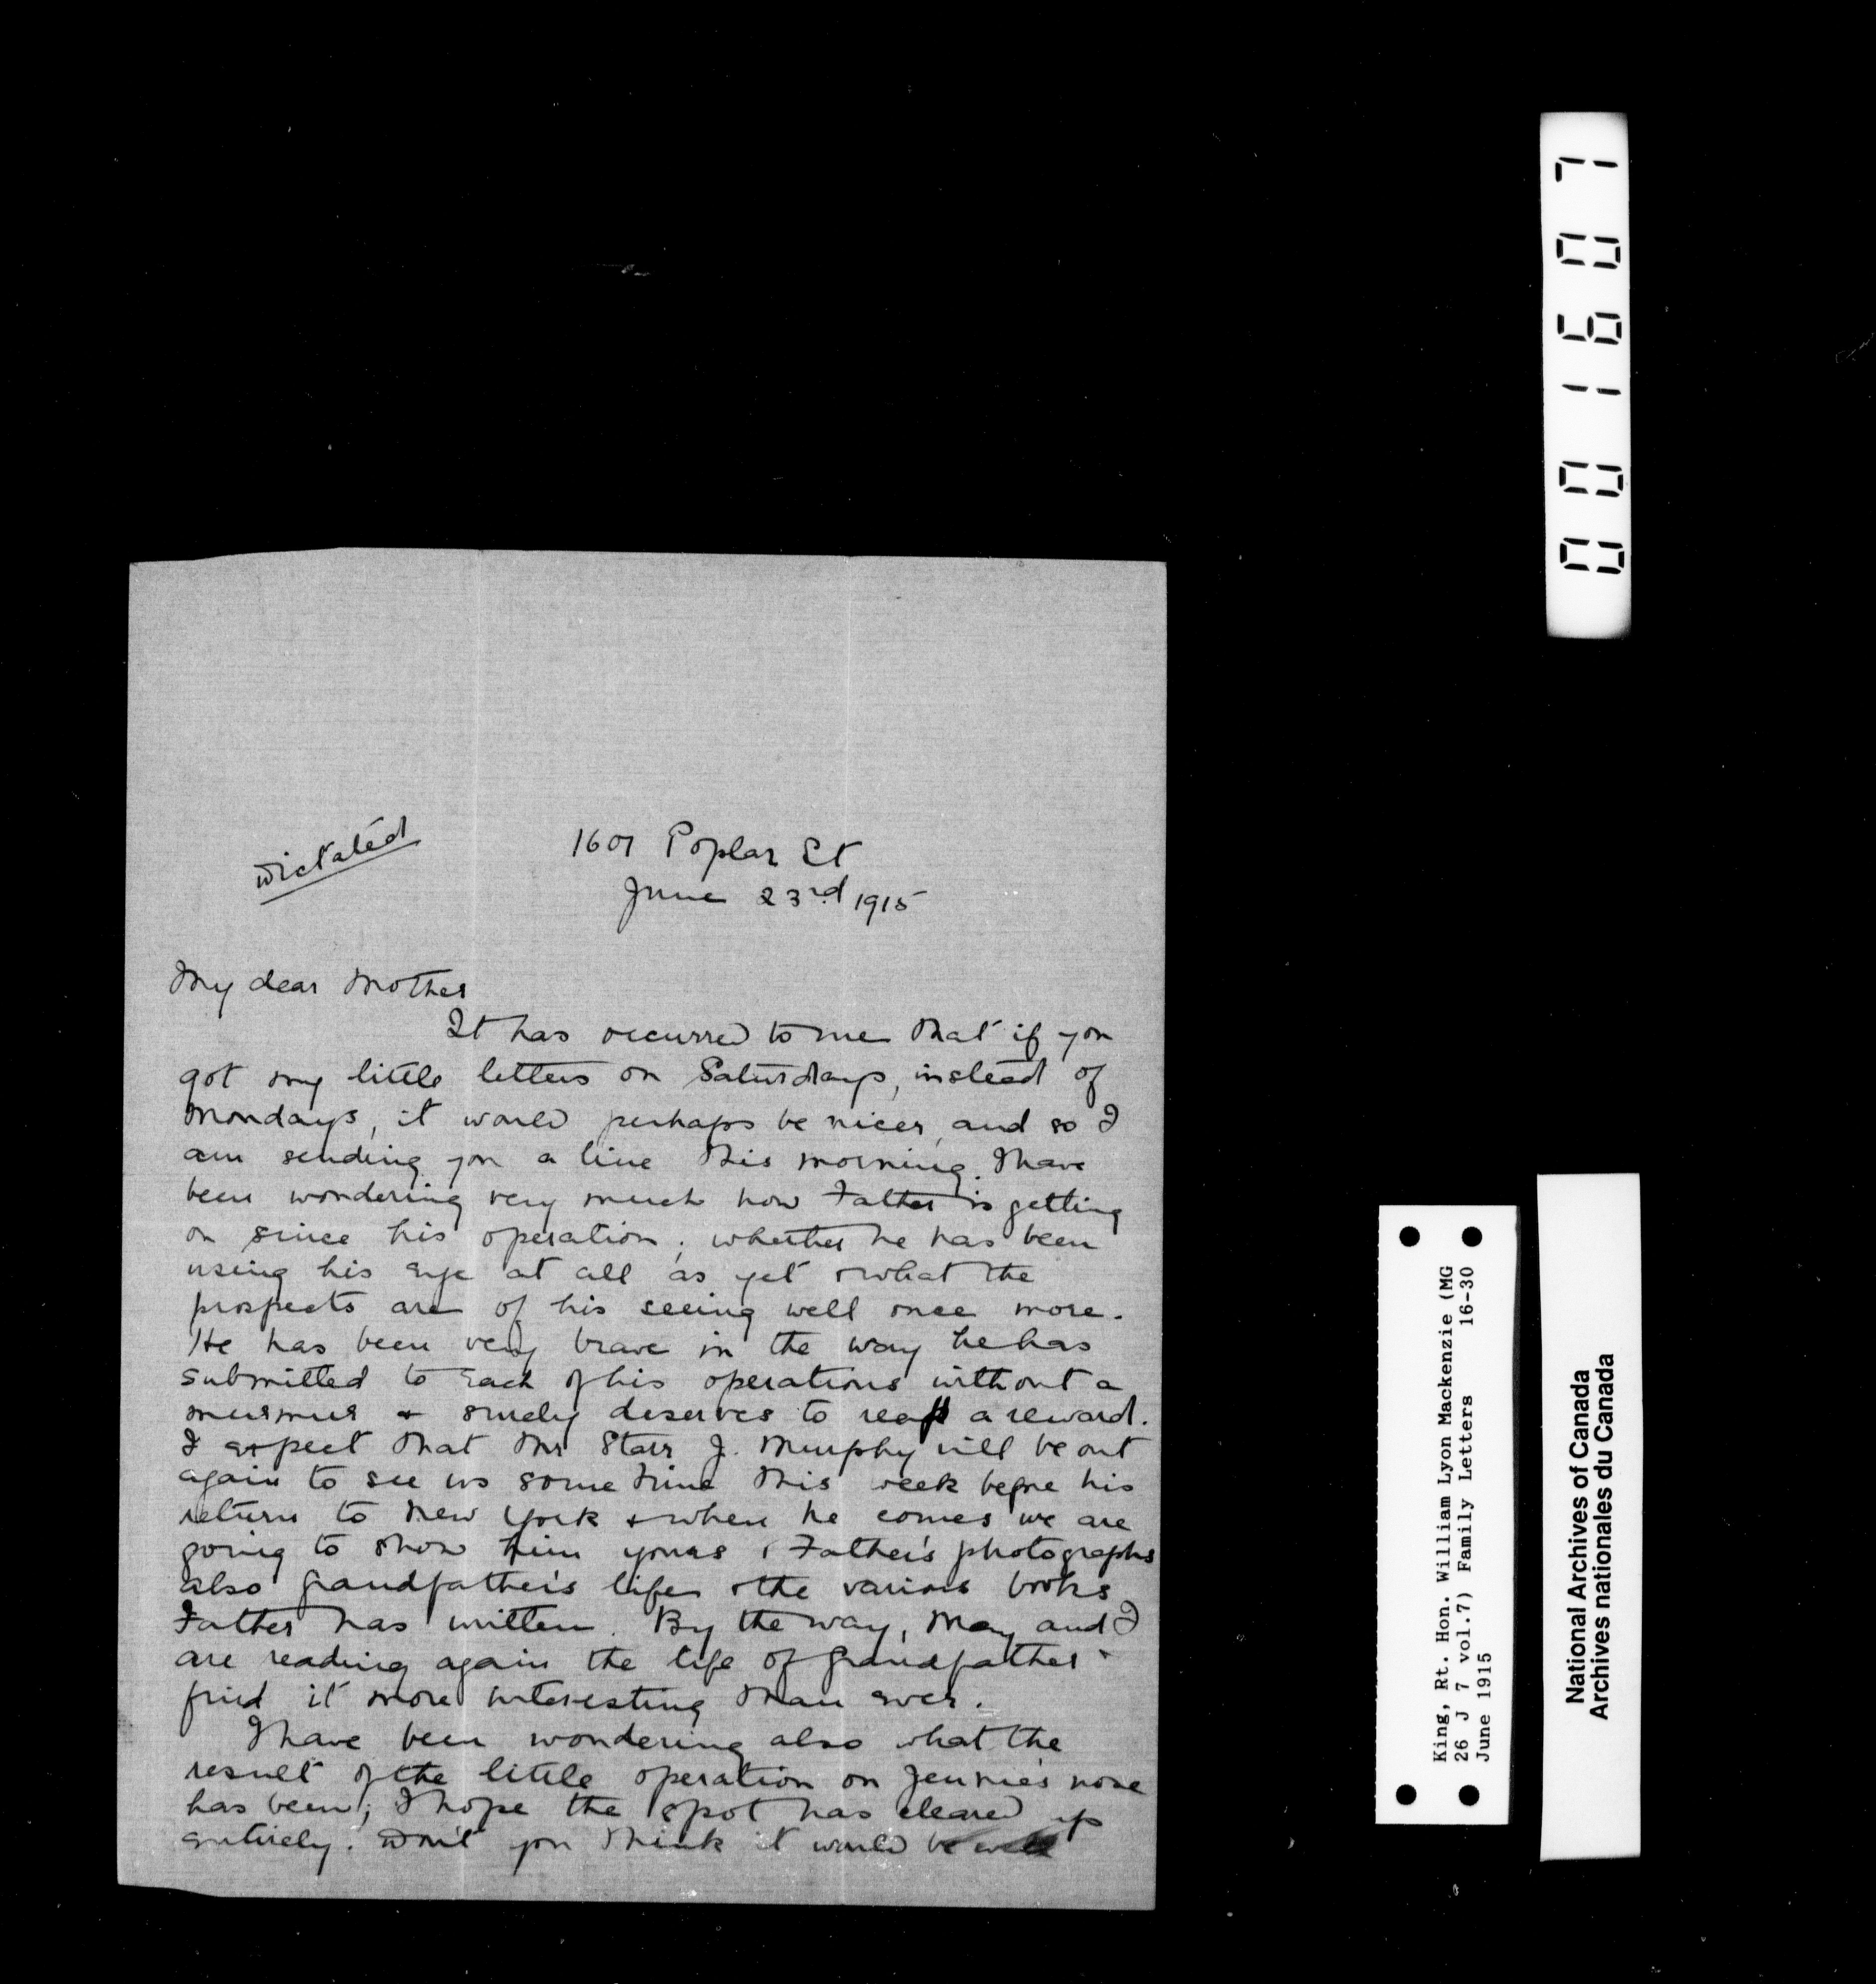 Dictated
1601 Poplar St
June 23rd 1915
My dear Mother
It has occurred to me that if you
got my little letters on Saturdays, instead of
Mondays, it would perhaps be nicer, and so I
am sending you a line this morning. I have
been wondering very much how Father is getting
on since his operation; whether he has been
using his eye at all as yet & what the
prospects are of his seeing well once more.
He has been very brave in the way he has
submitted to each of his operations without a
murmur & surely deserves to reap a reward.
I expect that Mr Starr J. Murphy will be out
again to see us some time this week before his
return to New York & when he comes we are
going to show him yours & Father's photographs
also grandfather's life & the various books
Father has written. By the way, May and I
are reading again the life of grandfather &
find it more interesting than ever.
I have been wondering also what the
result of the little operation on Jennie's nose
has been; I hope the spot has cleared up
entirely. Don't you think it would be well
0001607
King, Rt. Hon. William Lyon Mackenzie (MG
26 J 7 vol.7) Family Letters 16-30
June 1915
National Archives of Canada
Archives nationales du Canada